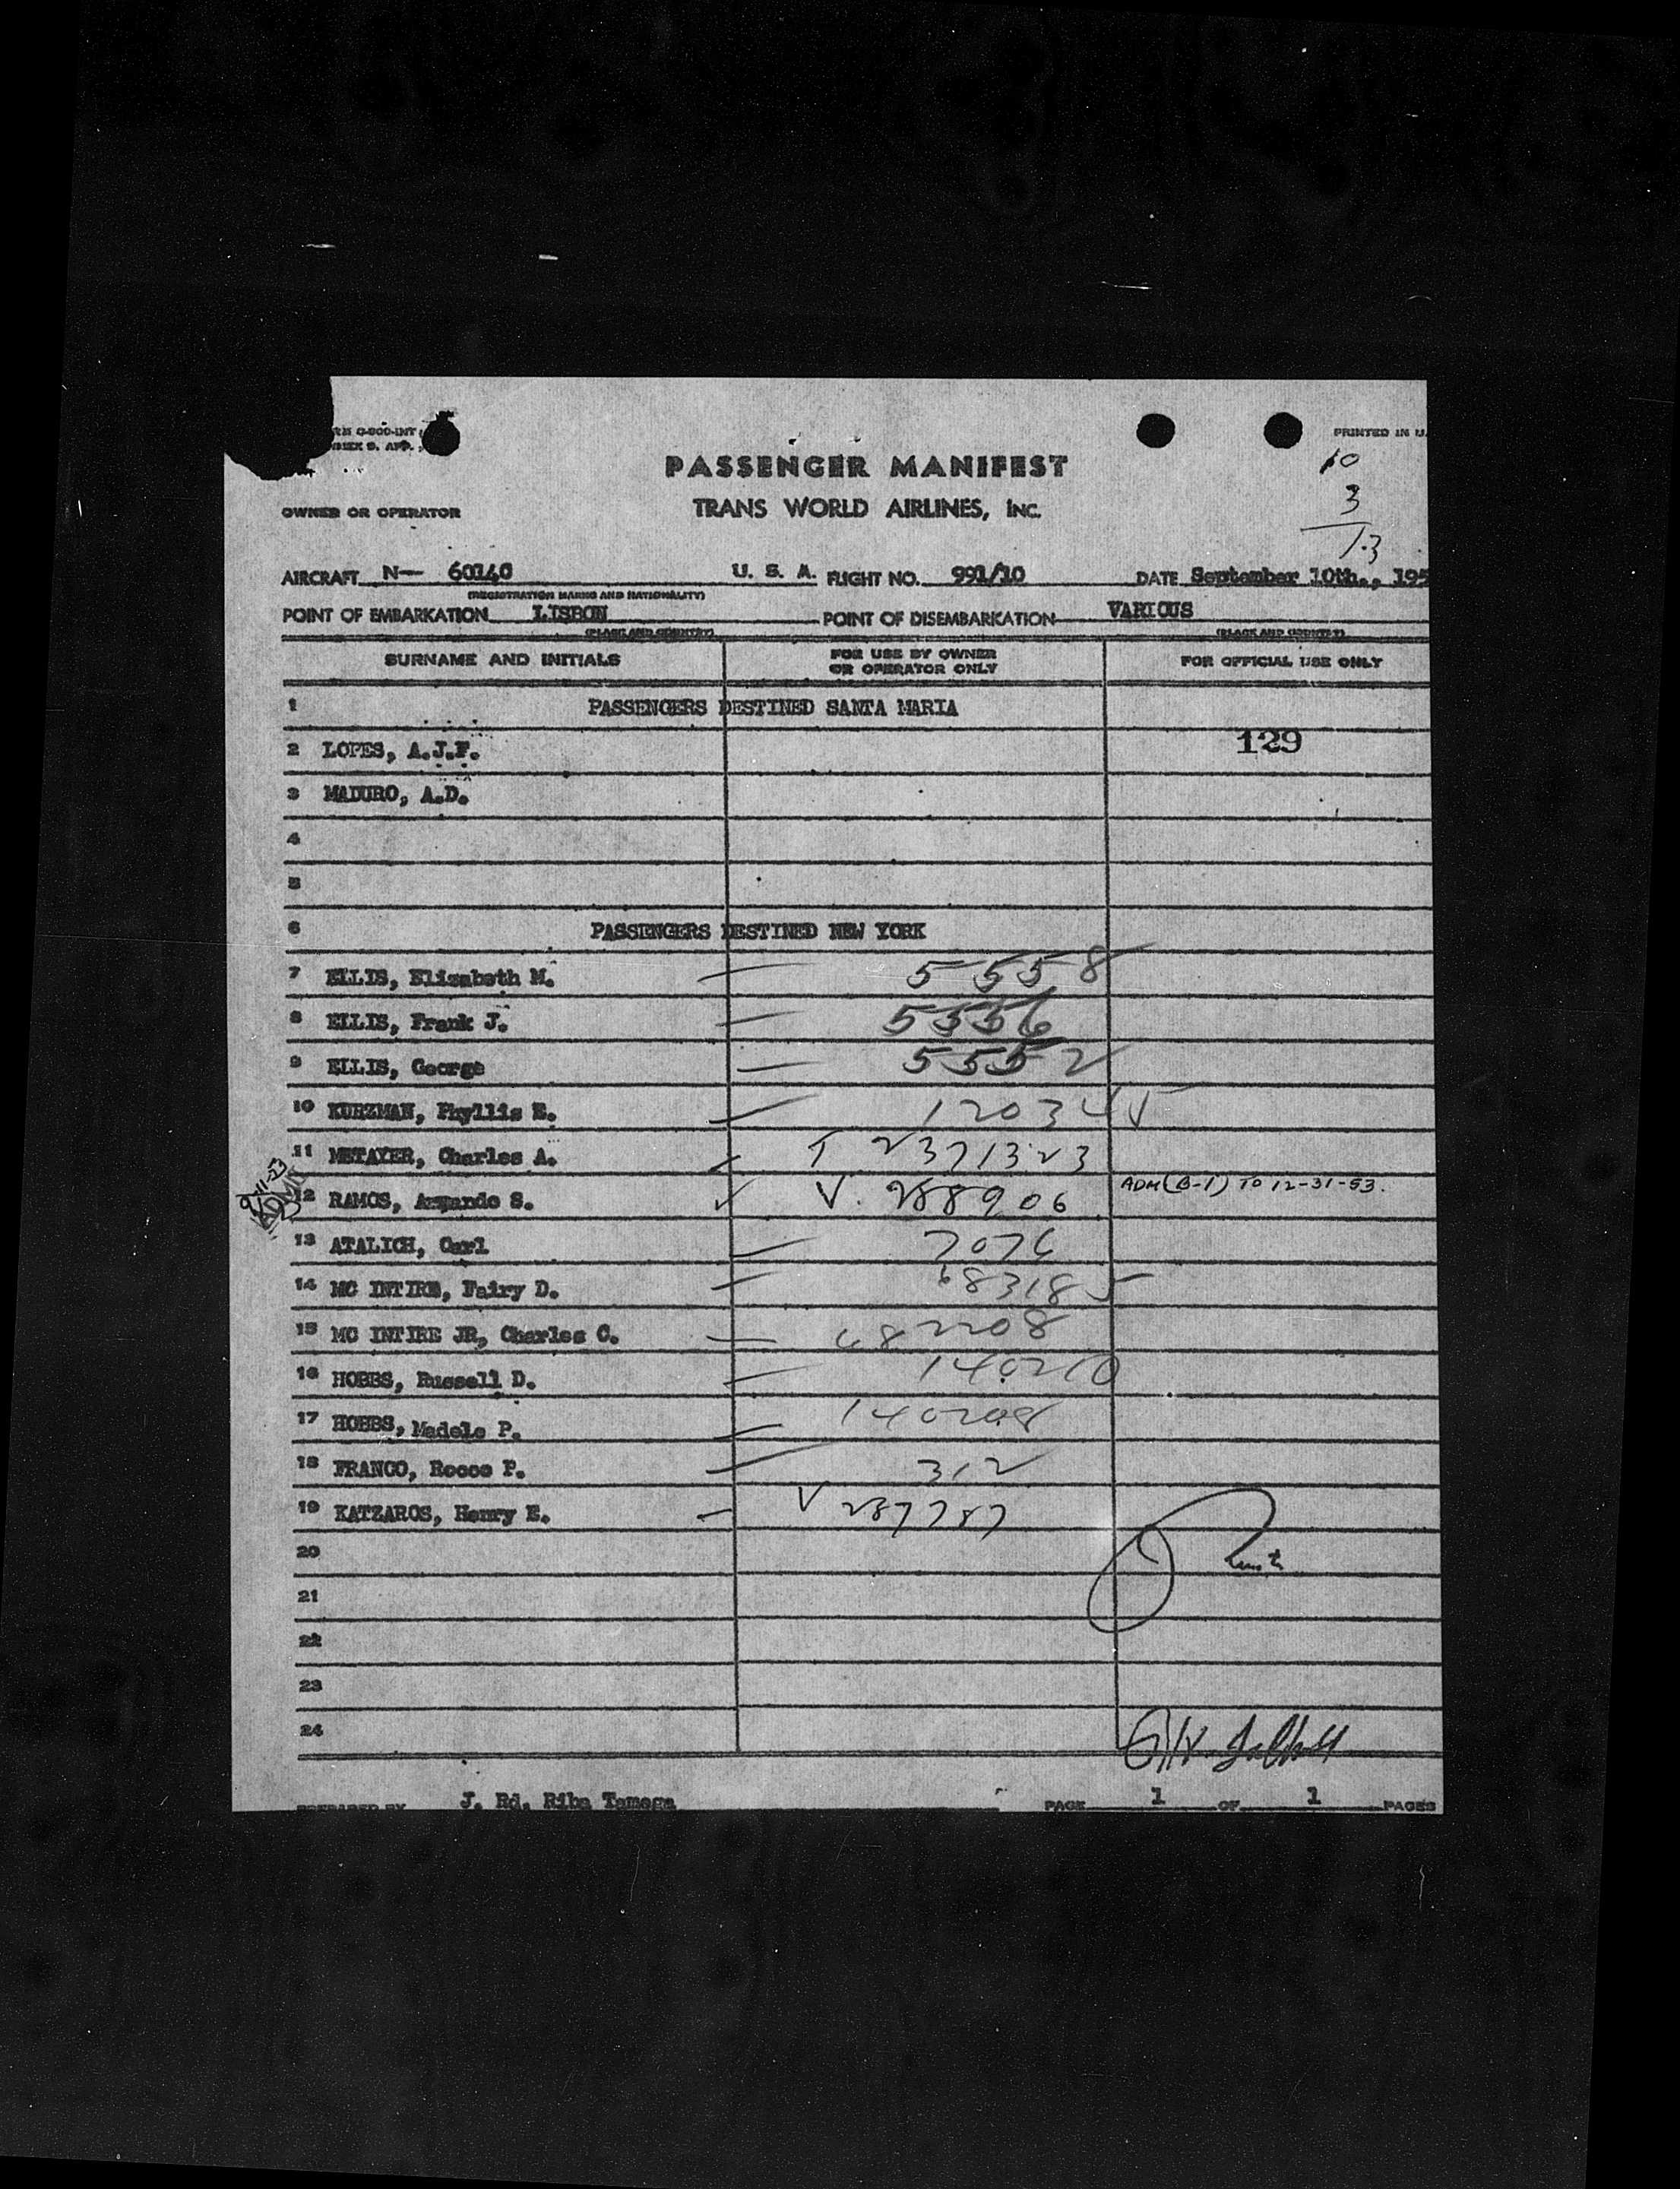 PRINTED IN U.
10
PASSENGER MANIFEST
3
OWNER OR OPERATOR TRANS WORLD AIRLINES, INC.
13
AIRCRAFT N— 60140 U. S. A. FLIGHT NO. 991/10 DATE September 10th., 195
(REGISTRATION MARKS AND NATIONALITY)
POINT OF EMBARKATION LISBON POINT OF DISEMBARKATION VARIOUS
(PLACE AND COUNTRY) (PLACE AND COUNTRY)
SURNAME AND INITIALS FOR USE BY OWNER OR OPERATOR ONLY FOR OFFICIAL USE ONLY
1 PASSENGERS DESTINED SANTA MARIA
2 LOPES, A.J.F. 129
3 MADURO, A.D.
4
5
6 PASSENGERS DESTINED NEW YORK
7 ELLIS, Elizabeth M. — 5558
8 ELLIS, Frank J. — 5556
9 ELLIS, George — 5552
10 KURZMAN, Phyllis E. — 12034
11 METAYER, Charles A. T 2371323
12 RAMOS, Armando S. ✓ V. 288906 ADM (B-1) TO 12-31-53.
13 ATALICH, Carl — 7076
14 MC INTIRE, Fairy D. — 683185
15 MC INTIRE JR, Charles C. — 682208
16 HOBBS, Russell D. — 140210
17 HOBBS, Madele P. — 140208
18 FRANCO, Rocco P. — 312
19 KATZAROS, Henry E. — V 287787
20
21
22
23
24
PREPARED BY J. Rd. Riba Tamega PAGE 1 OF 1 PAGES